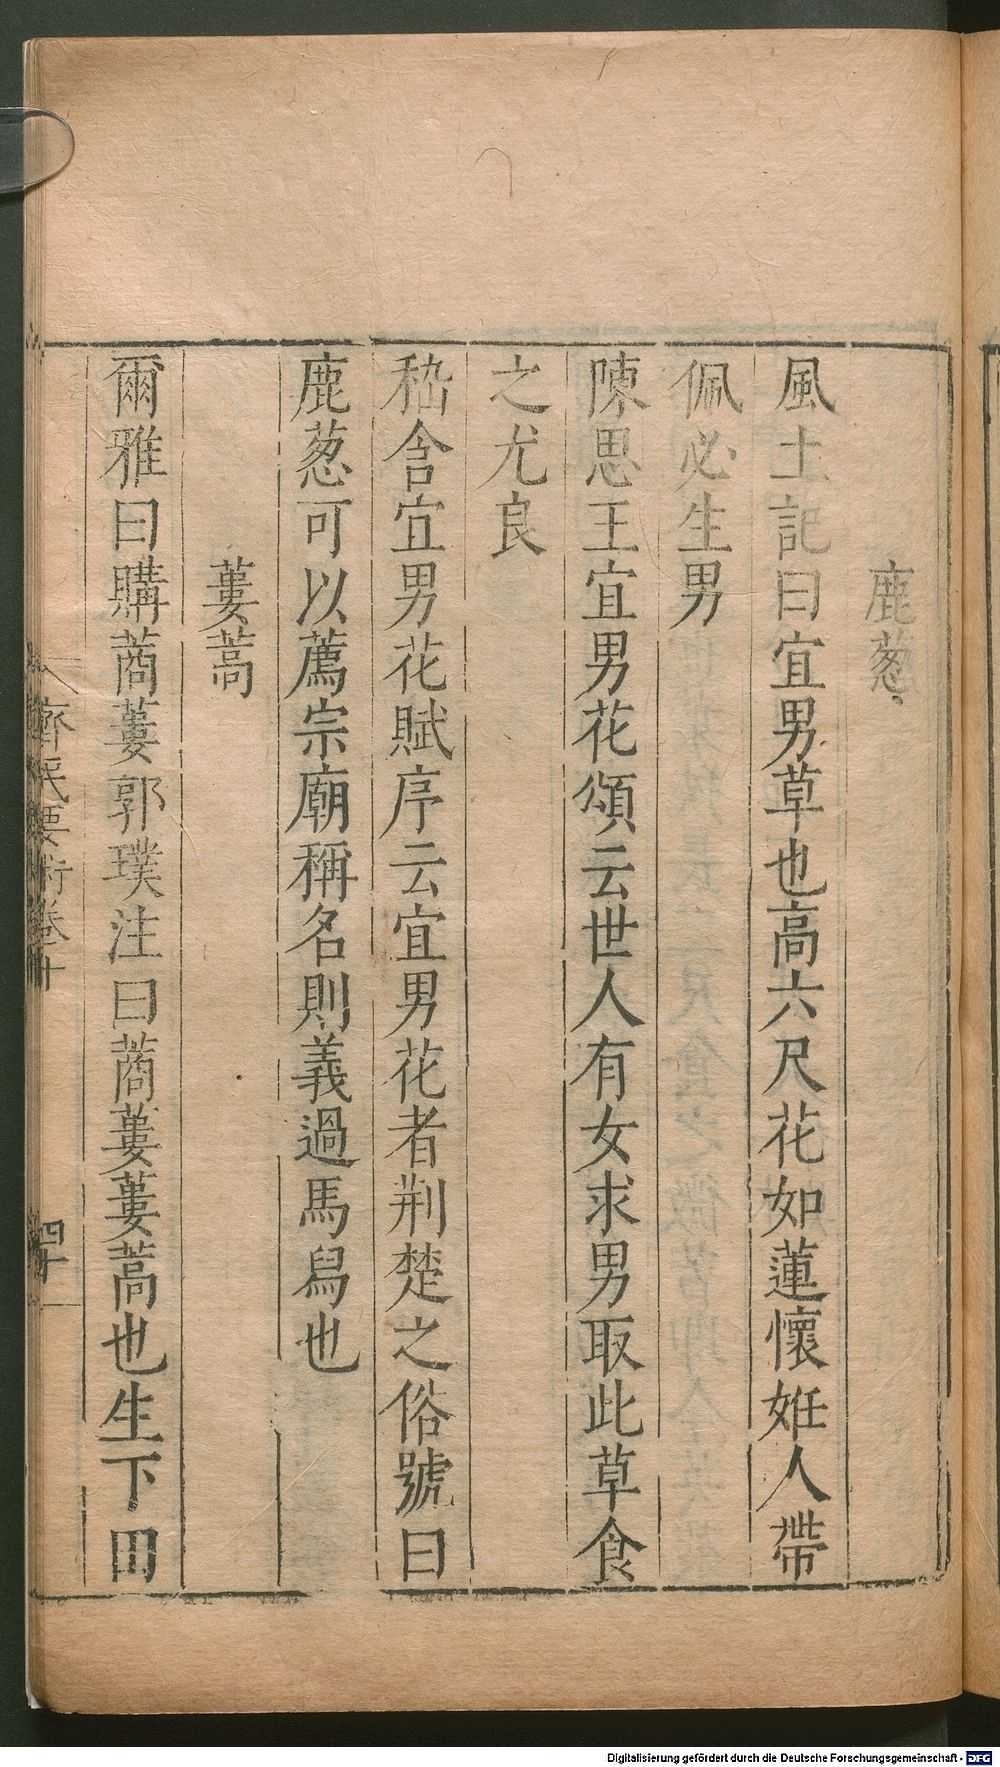 鹿葱
風土記曰宜男草也高六尺花如蓮懷姙人帶
佩必生男
陳思王宜男花頌云世人有女求男取此草食
之尤良
嵇含宜男花賦序云宜男花者荆楚之俗號曰
鹿葱可以薦宗廟稱名則義過馬舄也
蔞蒿
爾雅曰購蔏蔞郭璞注曰蔏蔞蔞蒿也生下田
齊民要術卷十
四十
Digitalisierung gefördert durch die Deutsche Forschungsgemeinschaft - DFG